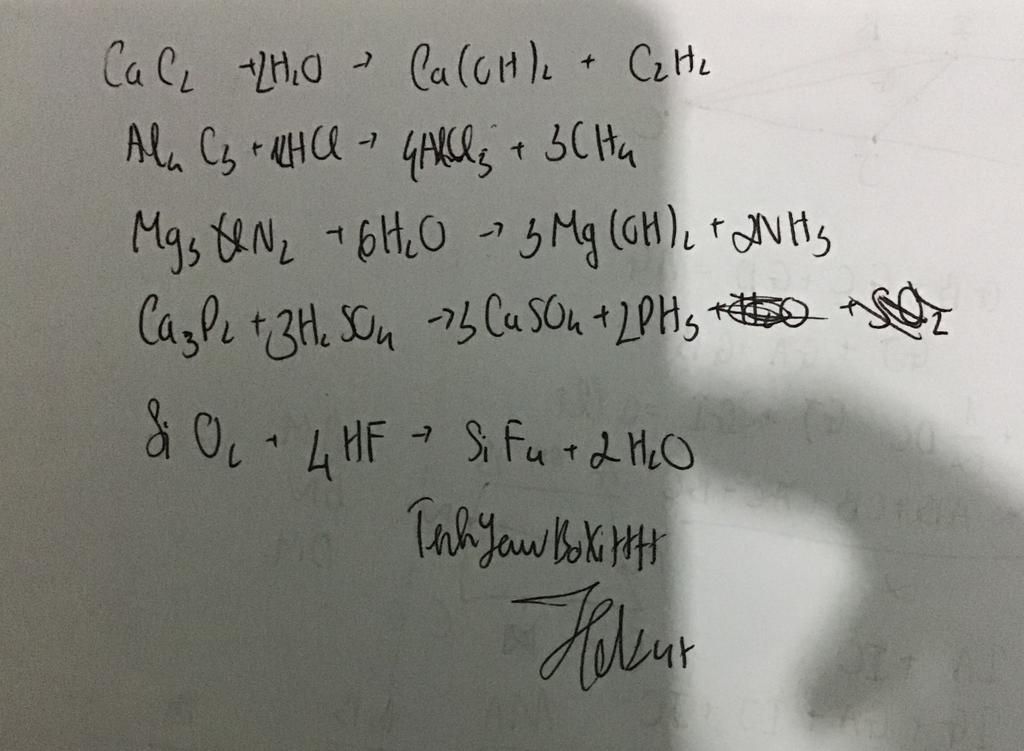 CaC2 +2H2O → Ca(OH)2 + C2H2
Al4C3 + 12HCl → 4AlCl3 + 3CH4
Mg3N2 + 6H2O → 3Mg(OH)2 + 2NH3
Ca3P2 + 3H2SO4 → 3CaSO4 + 2PH3
SiO2 + 4HF → SiF4 + 2H2O